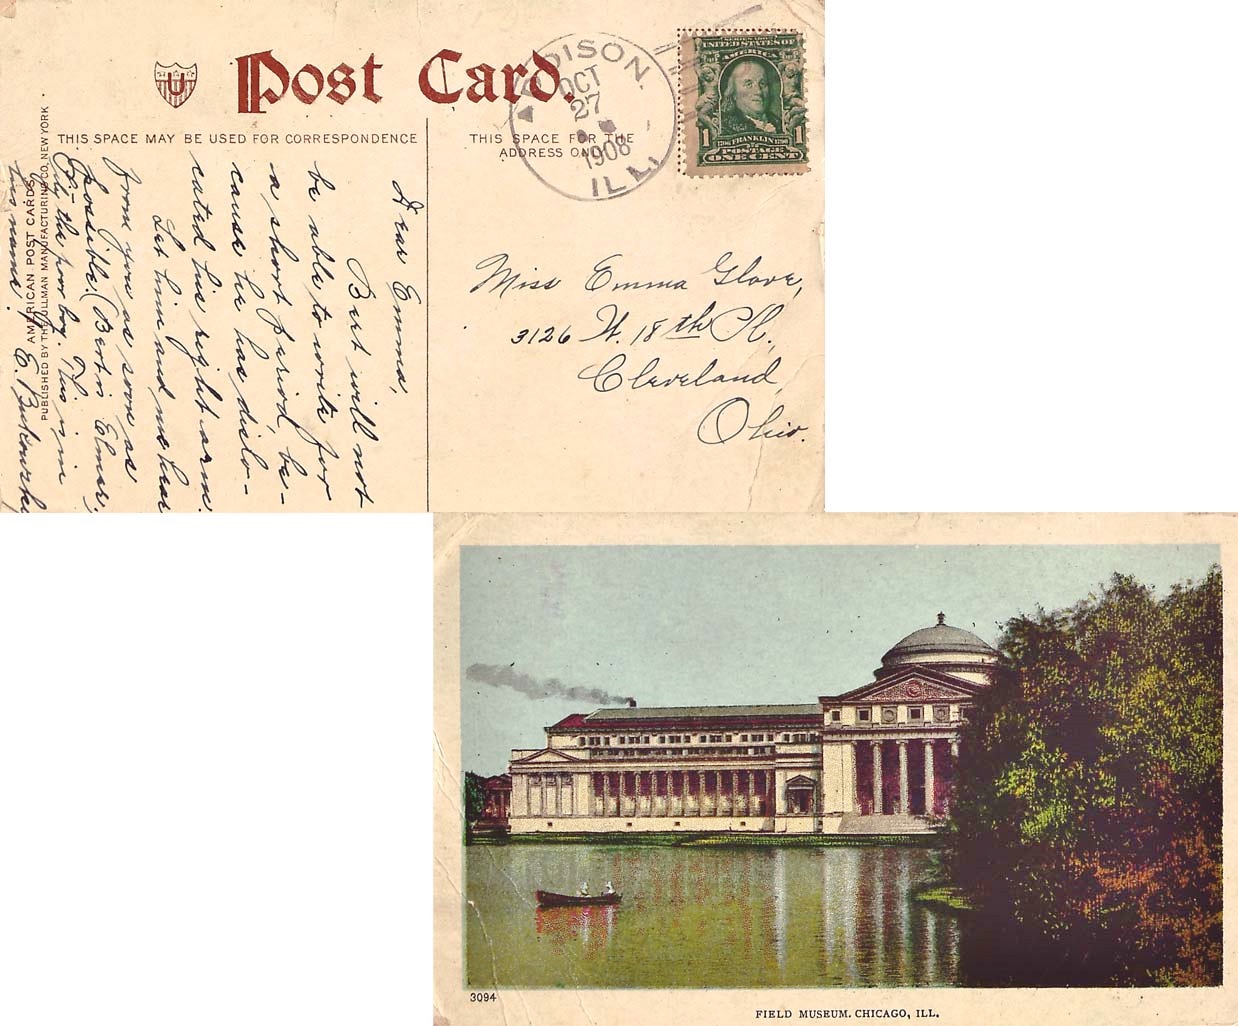 Post Card.
U
THIS SPACE MAY BE USED FOR CORRESPONDENCE
THIS SPACE FOR THE
ADDRESS ONLY
ADDISON,
OCT
27
1908
ILL.
SERIES 1902
UNITED STATES OF
AMERICA
1706 FRANKLIN 1790
POSTAGE
1 1
ONE CENT
AMERICAN POST CARDS
PUBLISHED BY THE ULLMAN MANUFACTURING CO. NEW YORK
Dear Emma,
Bert will not
be able to write for
a short period, be-
cause he has dislo-
cated his right arm.
Let him and me hear
from you as soon as
possible. (Bert is Elmer,
the poor boy. This is
his name.)
E.
Miss Emma Glove,
3126 W. 18th Pl.,
Cleveland,
Ohio.
3094
FIELD MUSEUM. CHICAGO, ILL.